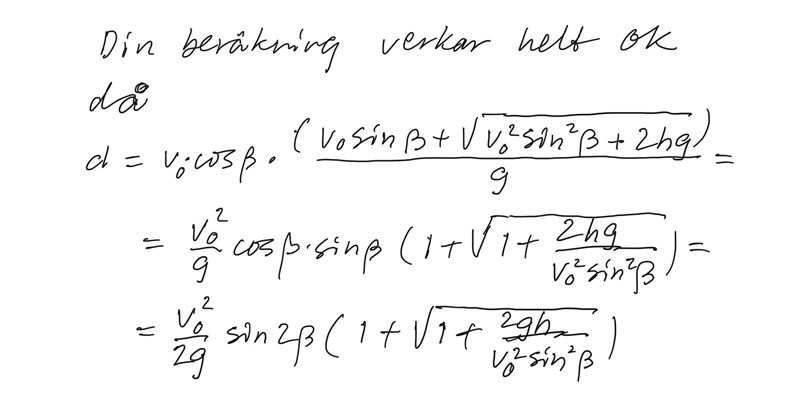 Din beräkning verkar helt ok
då
d = v₀·cosβ · (v₀ sinβ + √(v₀² sin²β + 2hg))/g =
= v₀²/g cosβ·sinβ (1 + √(1 + 2hg/(v₀² sin²β))) =
= v₀²/2g sin2β (1 + √(1 + 2gh/(v₀² sin²β)))